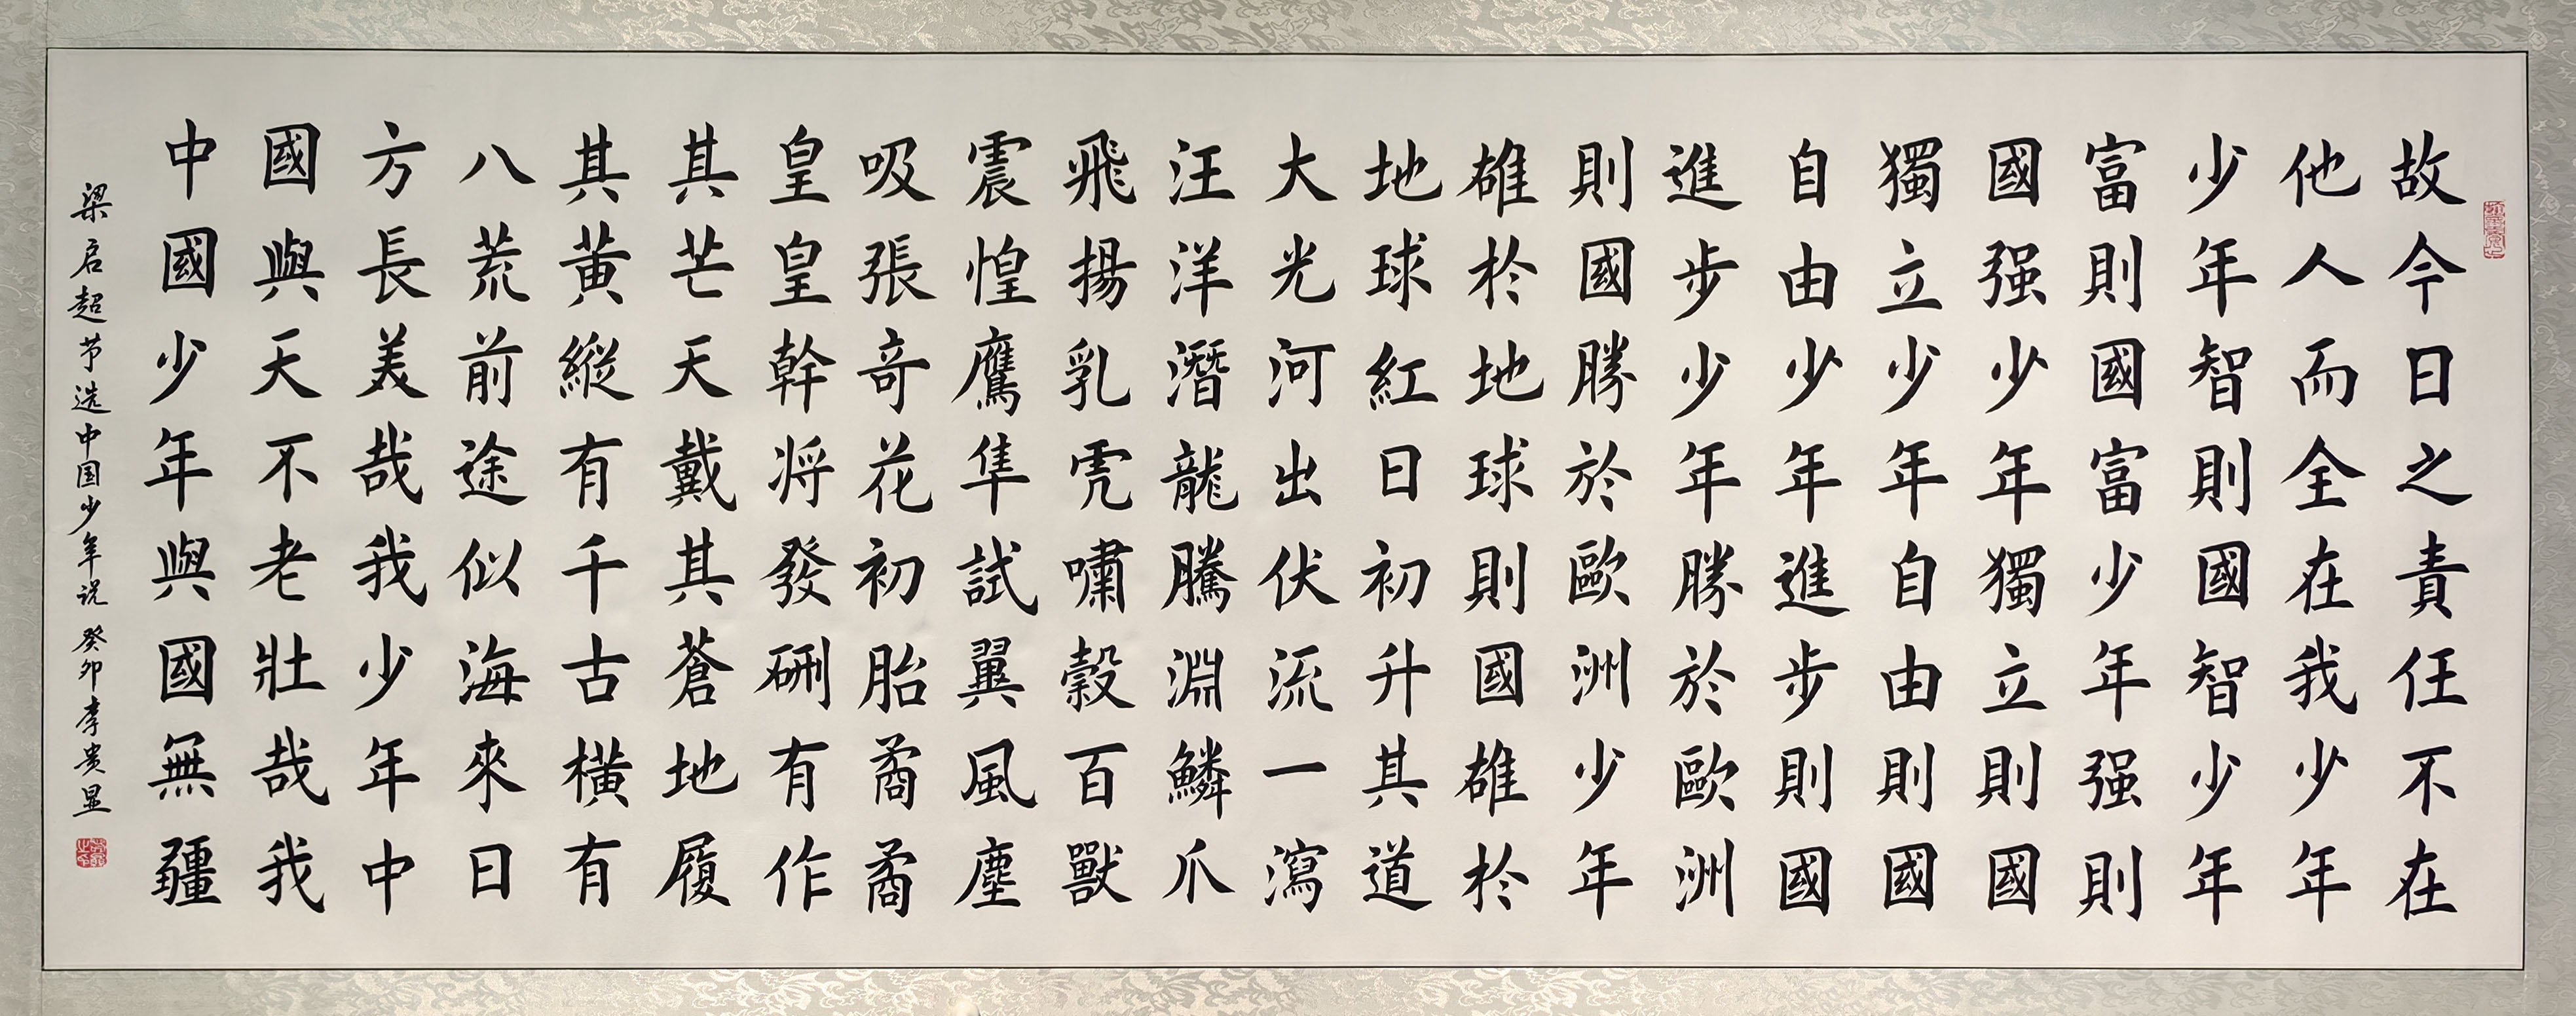 故今日之責任不在
他人而全在我少年
少年智則國智少年
富則國富少年强則
國强少年獨立則國
獨立少年自由則國
自由少年進步則國
進步少年勝於歐洲
則國勝於歐洲少年
雄於地球則國雄於
地球紅日初升其道
大光河出伏流一瀉
汪洋潛龍騰淵鱗爪
飛揚乳虎嘯榖百獸
震惶鷹隼試翼風塵
吸張奇花初胎矞矞
皇皇幹將發硎有作
其芒天戴其蒼地履
其黃縱有千古橫有
八荒前途似海來日
方長美哉我少年中
國與天不老壯哉我
中國少年與國無疆
梁启超节选中国少年说 癸卯李贵显